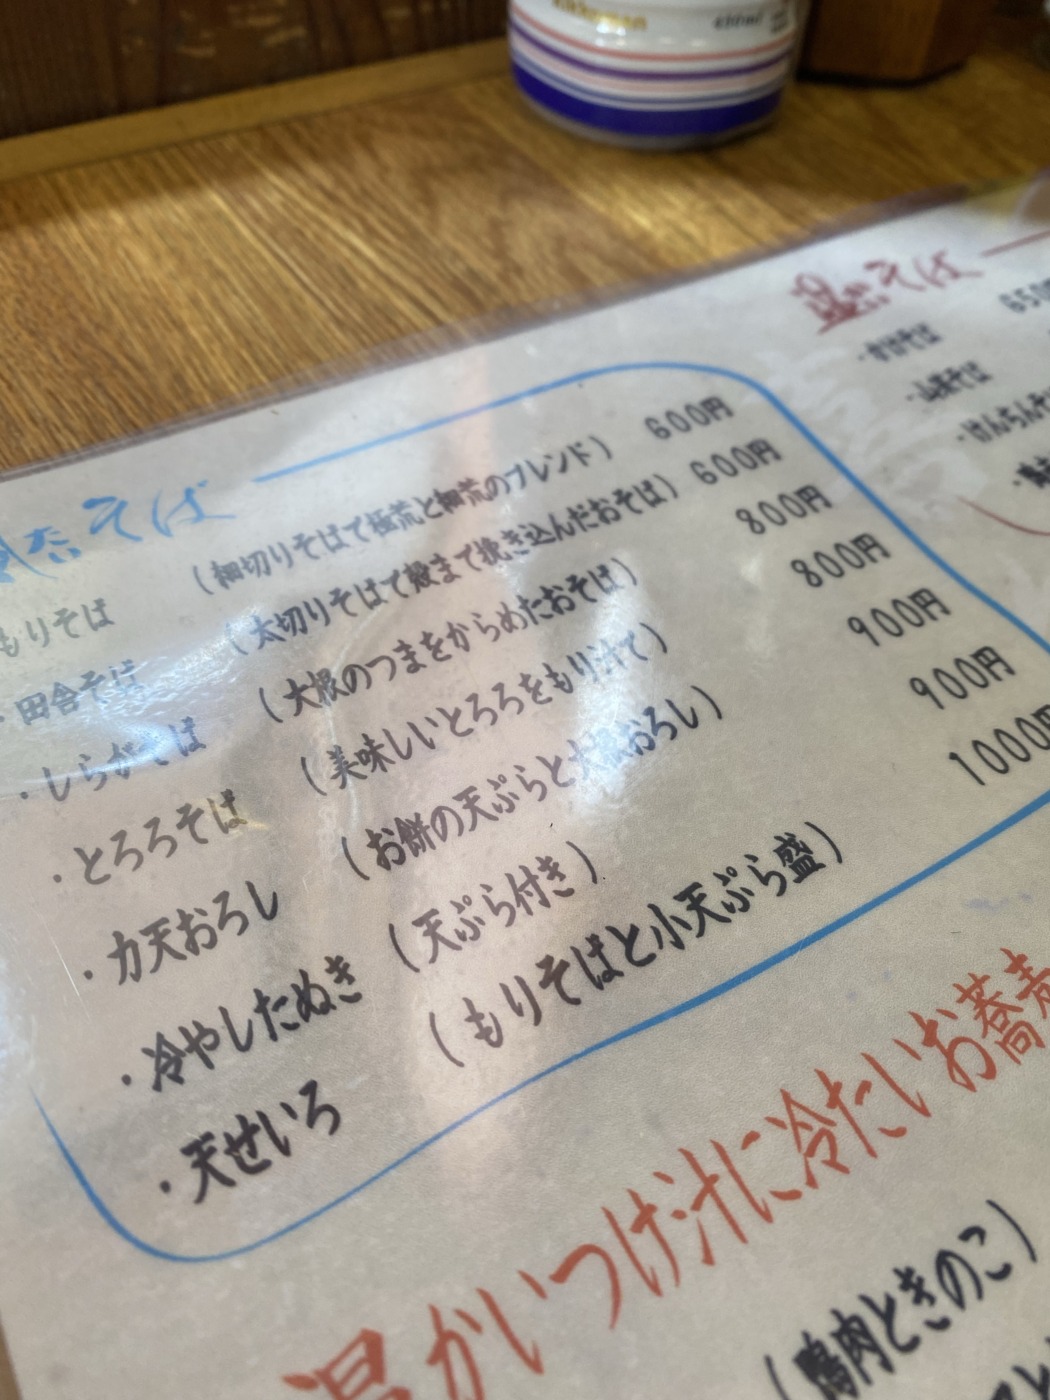 kikkoman
そば
もりそば (細切りそばで極荒と細荒のブレンド) 600円
・田舎そば (太切りそばで殻まで挽き込んだおそば) 600円
・しらがそば (大根のつまをからめたおそば) 800円
・とろろそば (美味しいとろろをもり汁で) 800円
・力天おろし (お餅の天ぷらと大根おろし) 900円
・冷やしたぬき (天ぷら付き) 900円
・天せいろ (もりそばと小天ぷら盛) 1000円
温そば
・かけそば 650
・山菜そば
・けんちんそ
温かいつけ汁に冷たいお蕎麦
(鴨肉ときのこ)